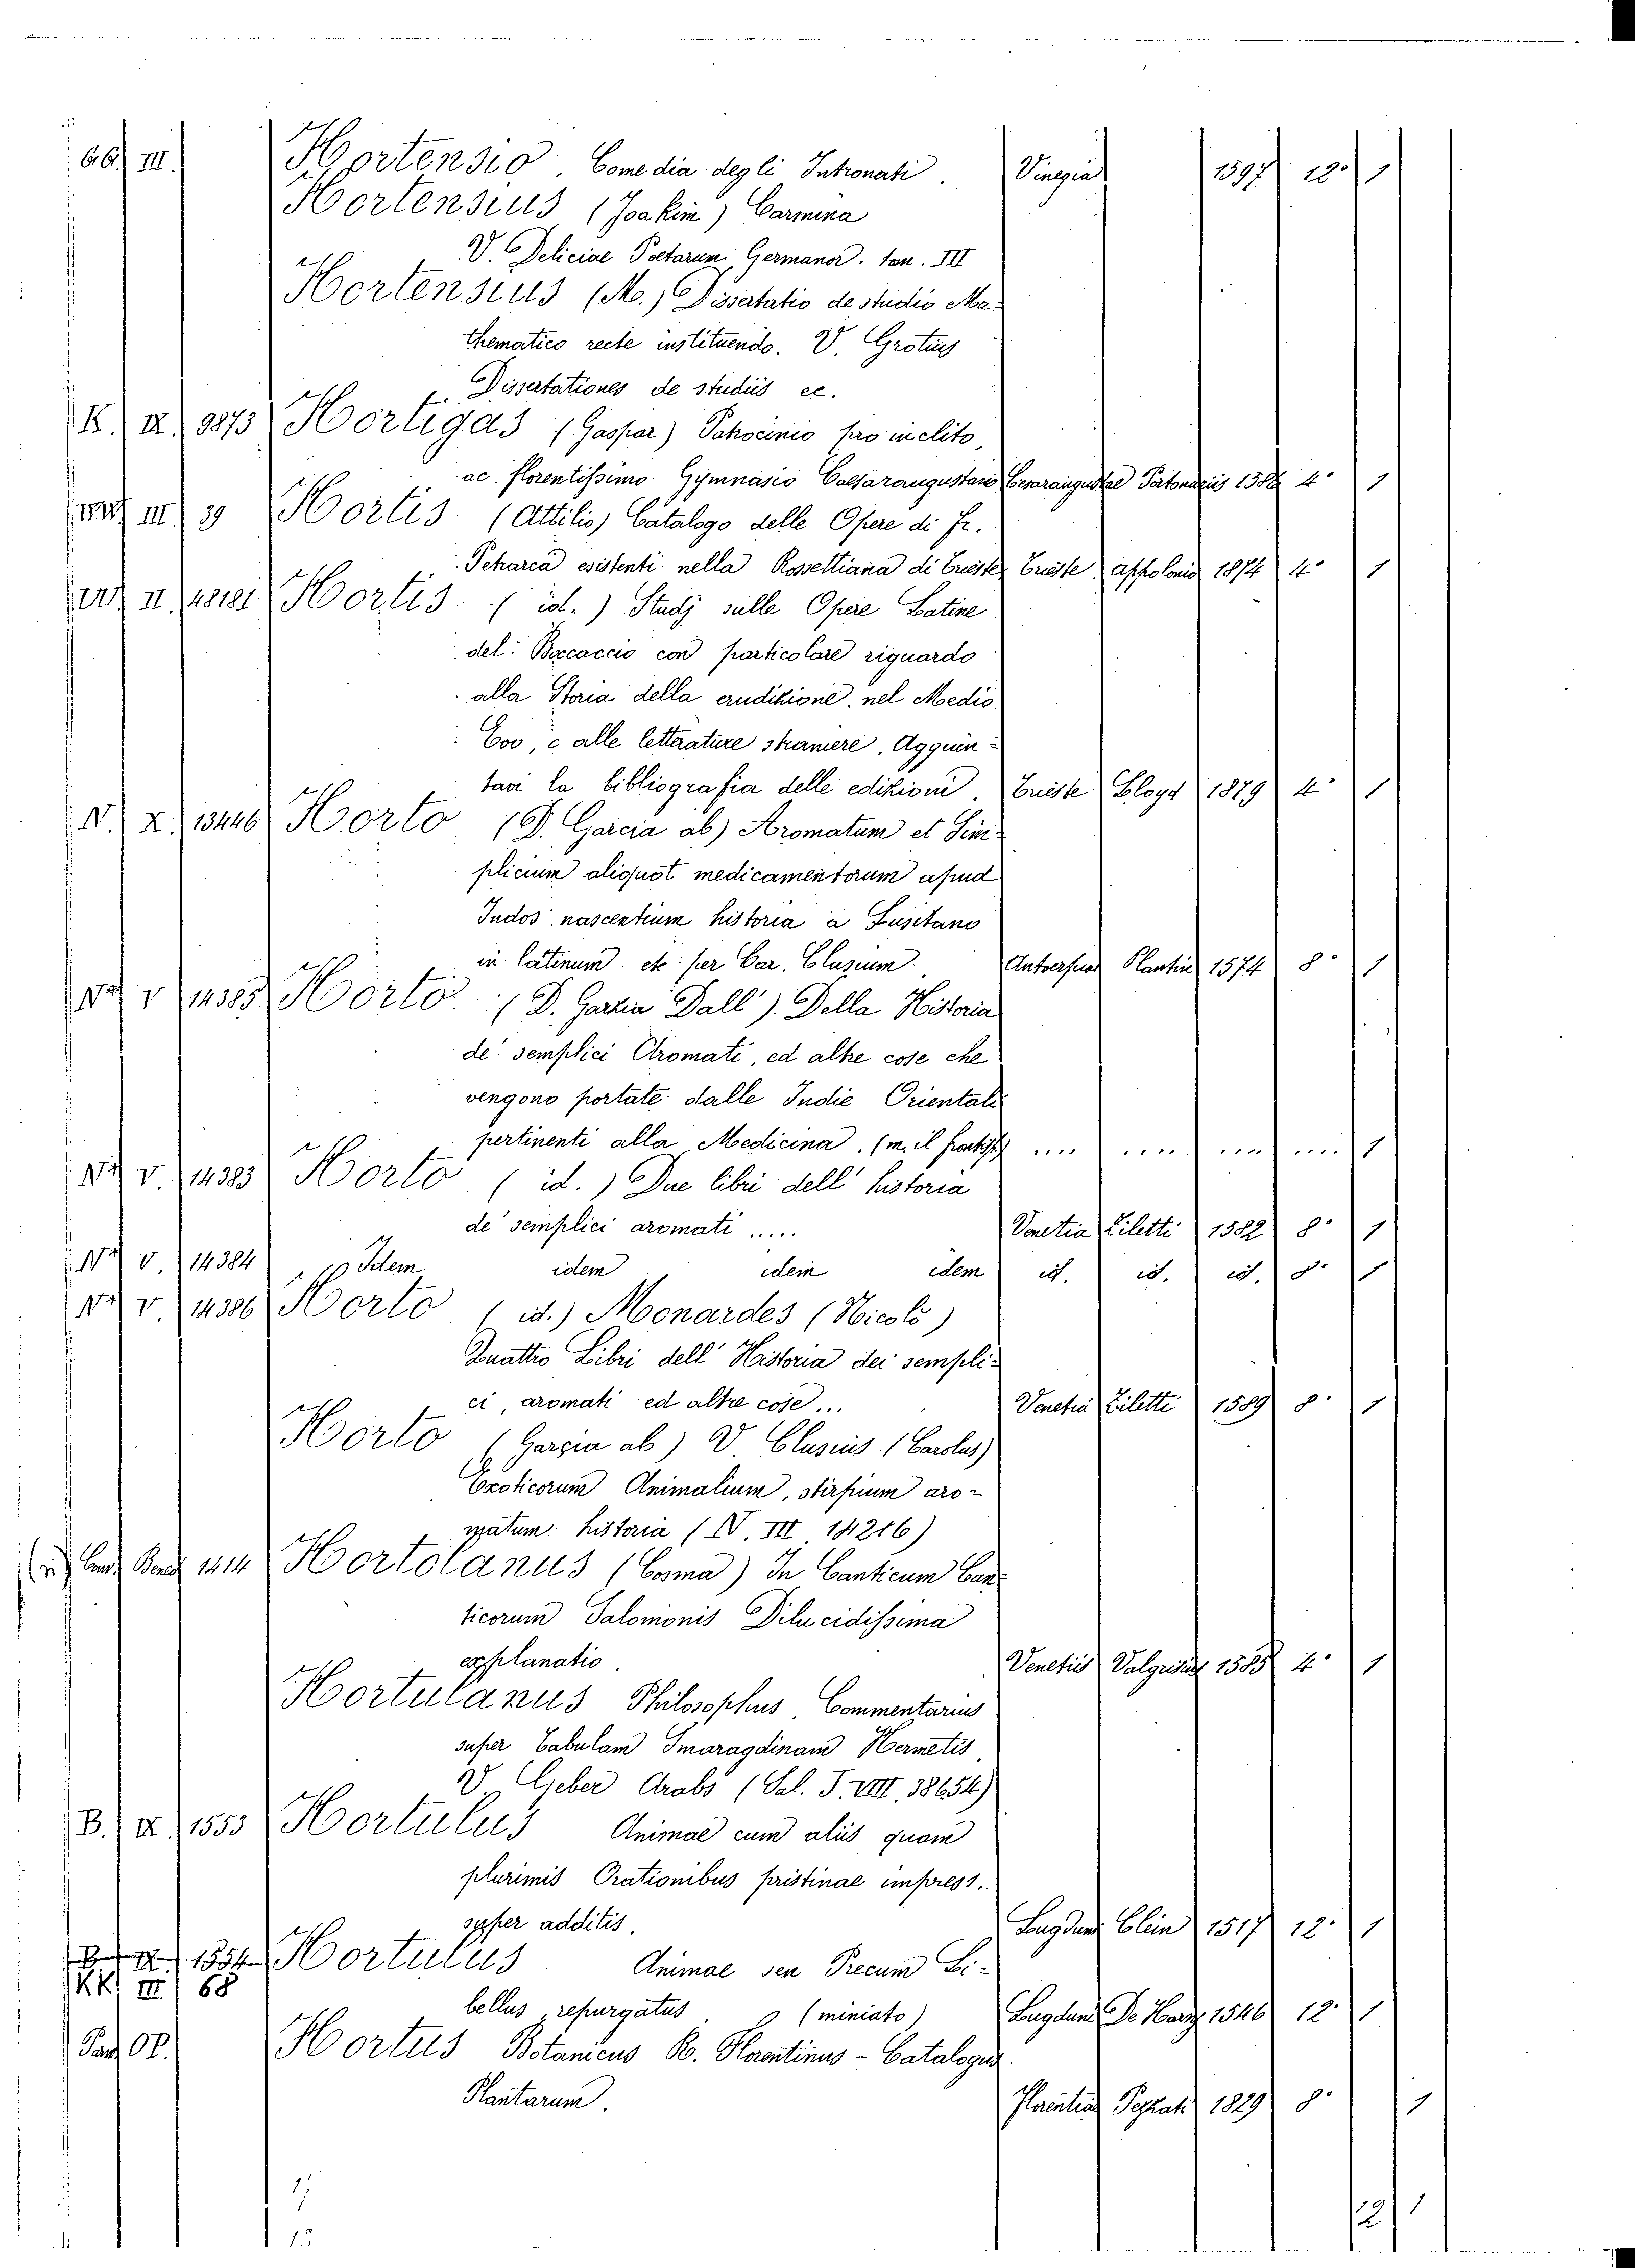 66. III. Hortensio. Comedia degli Intronati. Vinegia 1597 12° 1
Hortensius (Joakim) Carmina
V. Deliciae Poetarum Germanor. tom. III
Hortensius (M.) Dissertatio de studio Ma-
thematico recte instituendo. V. Grotius
Dissertationes de studiis ec.
K. IX. 9873 Hortigas (Gaspar) Patrocinio pro inclito,
ac florentissimo Gymnasio Caesaraugustano Cesaraugustae 1586 4° 1
III. 39 Hortis (Attilio) Catalogo delle Opere di Fr.
Petrarca esistenti nella Rossettiana di Trieste Trieste Appolonio 1874 4° 1
II. 48181 Hortis (id.) Studj sulle Opere Latine
del Boccaccio con particolare riguardo
alla Storia della erudizione nel Medio
Evo, e alle letterature straniere. Aggiun-
tavi la bibliografia delle edizioni. Trieste Lloyd 1879 4° 1
N. X. 13446 Horto (D. Garcia ab) Aromatum et Sim-
plicium aliquot medicamentorum apud
Indos nascentium historia a Lusitano
in latinum etc. per Car. Clusium. Antverpiae Plantin 1574 8° 1
V 14385 Horto (D. Garzia Dall') Della Historia
de' semplici Aromati, ed altre cose che
vengono portate dalle Indie Orientali
pertinenti alla Medicina. (m. il frontisp.) .... .... .... .... 1
V. 14383 Horto (id.) Due libri dell' historia
de' semplici aromati ..... Venetia Ziletti 1582 8° 1
V. 14384 Idem idem idem idem id. id. id. 8° 1
V 14386 Horto (id.) Monardes (Nicolò)
Quattro Libri dell' Historia dei sempli-
ci, aromati ed altre cose... Venetia Ziletti 1589 8° 1
Horto (Garzia ab) V. Clusius (Carolus)
Exoticorum Animalium, stirpium aro-
matum historia (N. III 14216)
1414 Hortolanus (Cosma) In Canticum Can-
ticorum Salomonis Dilucidissima
explanatio. Venetiis Valgrisius 1585 4° 1
Hortulanus Philosophus. Commentarius
super Tabulam Smaragdinam Hermetis.
V. Geber Arabs (Sal. J. VIII. 38654)
B. IX. 1553 Hortulus Animae cum aliis quam
plurimis Orationibus pristinae impress.
super additis. Lugduni Clein 1517 12° 1
B. IX. 1554 Hortulus Animae seu Precum Li-
KK. III. 68
bellus, repurgatus. (miniato) Lugduni De Harsy 1546 12° 1
Hortus Botanicus R. Florentinus - Catalogus
Plantarum. Florentiae Pezzati 1829 8° 1
12 1